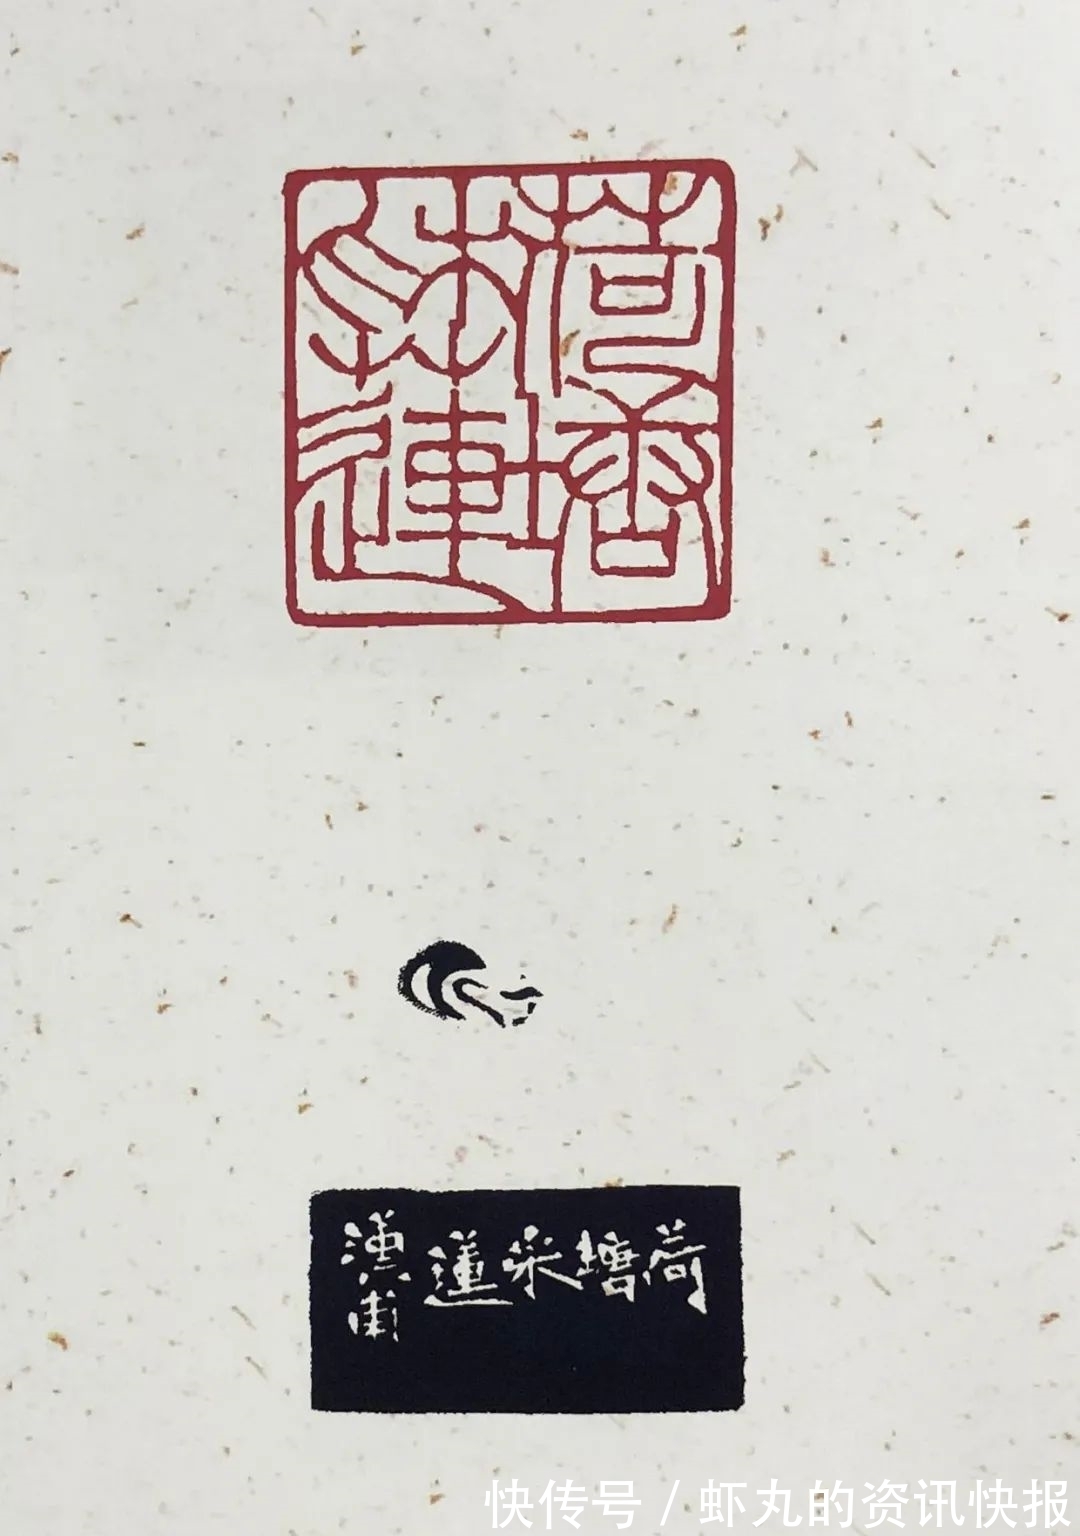 荷塘
采連
荷塘采蓮
甫
快传号 / 虾丸的资讯快报